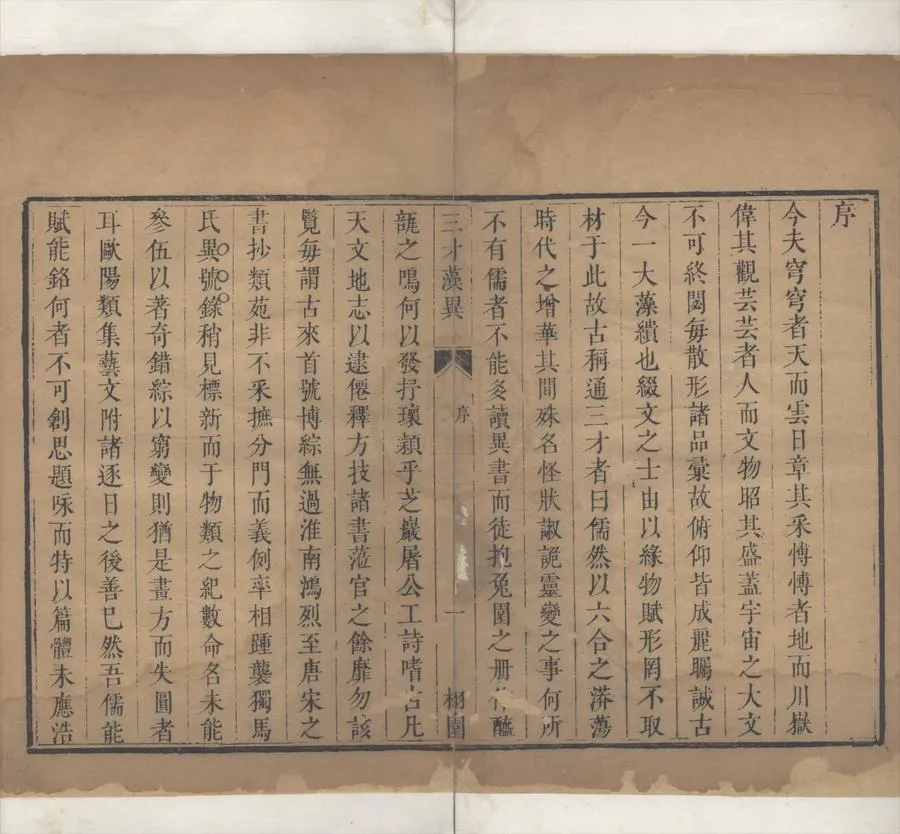 序
今夫穹穹者天而雲日章其采愽愽者地而川嶽
偉其觀芸芸者人而文物昭其盛蓋宇宙之大文
不可終閟毎散形諸品彙故俯仰皆成麗矚誠古
今一大藻繢也綴文之士由以緣物賦形罔不取
材于此故古稱通三才者曰儒然以六合之漭蕩
時代之增華其間殊名怪狀淑詭靈變之事何所
不有儒者不能多讀異書而徒抱兔園之册作醯
三才藻異 序 一 栩園
瓿之鳴何以發抒瓌穎乎芝巖屠公工詩嗜古凡
天文地志以逮僊釋方技諸書蒞官之餘靡勿該
覽毎謂古來首號博綜無過淮南鴻烈至唐宋之
書抄類苑非不釆摭分門而義例率相踵襲獨馬
氏異號錄稍見標新而于物類之紀數命名未能
參伍以著奇錯綜以窮變則猶是畫方而失圓者
耳歐陽類集藝文附諸逐日之後善已然吾儒能
賦能銘何者不可創思題咏而特以篇體未應浩